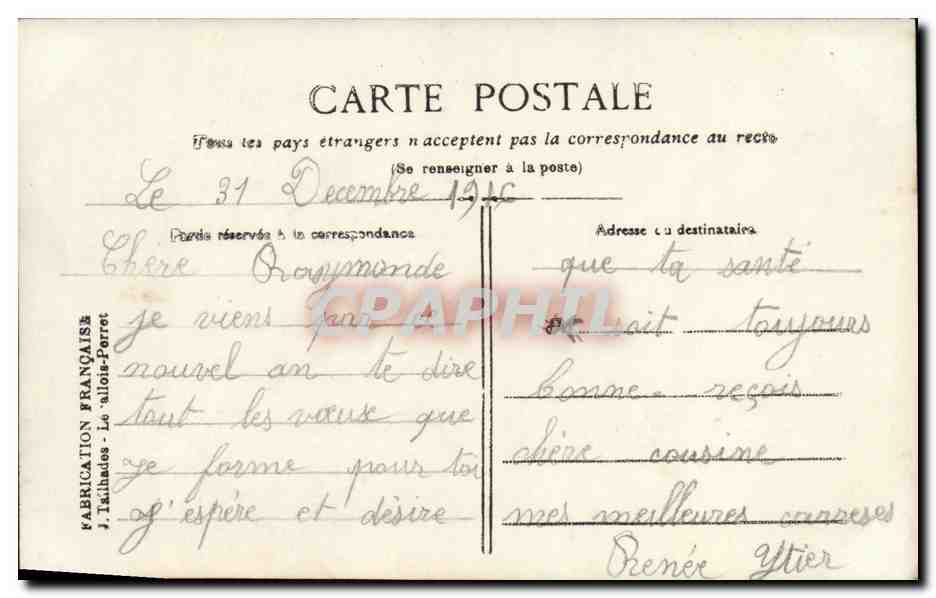 CARTE POSTALE
Tous les pays étrangers n'acceptent pas la correspondance au recto
(Se renseigner à la poste)
Le 31 Decembre
Partie réservée à la correspondance
Chère Raymonde
je viens par
nouvel an te dire
tout les vœux que
je forme pour toi
j'espére et désire
Adresse du destinataire
que ta santé
soit toujours
bonne. reçois
chère cousine
mes meilleures carreses
Renée Ytier
FABRICATION FRANÇAISE
J. Tailhades - Levallois-Perret
CPAPHIL